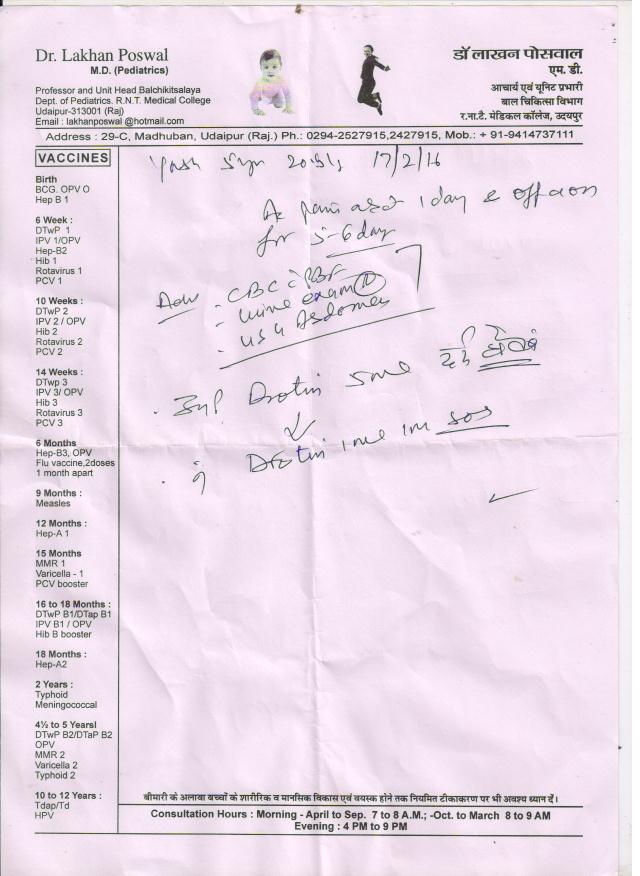 Dr. Lakhan Poswal
M.D. (Pediatrics)
Professor and Unit Head Balchikitsalaya
Dept. of Pediatrics. R.N.T. Medical College
Udaipur-313001 (Raj)
Email : lakhanposwal @hotmail.com
डॉ लाखन पोसवाल
एम. डी.
आचार्य एवं यूनिट प्रभारी
बाल चिकित्सा विभाग
र.ना.टै. मेडिकल कॉलेज, उदयपुर
Address : 29-C, Madhuban, Udaipur (Raj.) Ph.: 0294-2527915,2427915, Mob.: + 91-9414737111
VACCINES
Birth
BCG. OPV O
Hep B 1
6 Week :
DTwP 1
IPV 1/OPV
Hep-B2
Hib 1
Rotavirus 1
PCV 1
10 Weeks :
DTwP 2
IPV 2 / OPV
Hib 2
Rotavirus 2
PCV 2
14 Week :
DTwp 3
IPV 3/ OPV
Hib 3
Rotavirus 3
PCV 3
6 Months
Hep-B3, OPV
Flu vaccine,2doses
1 month apart
9 Months :
Measles
12 Months :
Hep-A 1
15 Months
MMR 1
Varicella - 1
PCV booster
16 to 18 Months :
DTwP B1/DTap B1
IPV B1 / OPV
Hib B booster
18 Months :
Hep-A2
2 Years :
Typhoid
Meningococcal
4½ to 5 Yearsl
DTwP B2/DTaP B2
OPV
MMR 2
Varicella 2
Typhoid 2
10 to 12 Years :
Tdap/Td
HPV
Yash 5yr 17/2/16
pain 1 day & off & on
for 5-6 day
Adv - CBC c PBF
- urine exam
- USG Abdomen
Drotin 5ml दर्द होने पर
Drotin 1ml im sos
बीमारी के अलावा बच्चों के शारीरिक व मानसिक विकास एवं वयस्क होने तक नियमित टीकाकरण पर भी अवश्य ध्यान दें।
Consultation Hours : Morning - April to Sep. 7 to 8 A.M.; -Oct. to March 8 to 9 AM
Evening : 4 PM to 9 PM